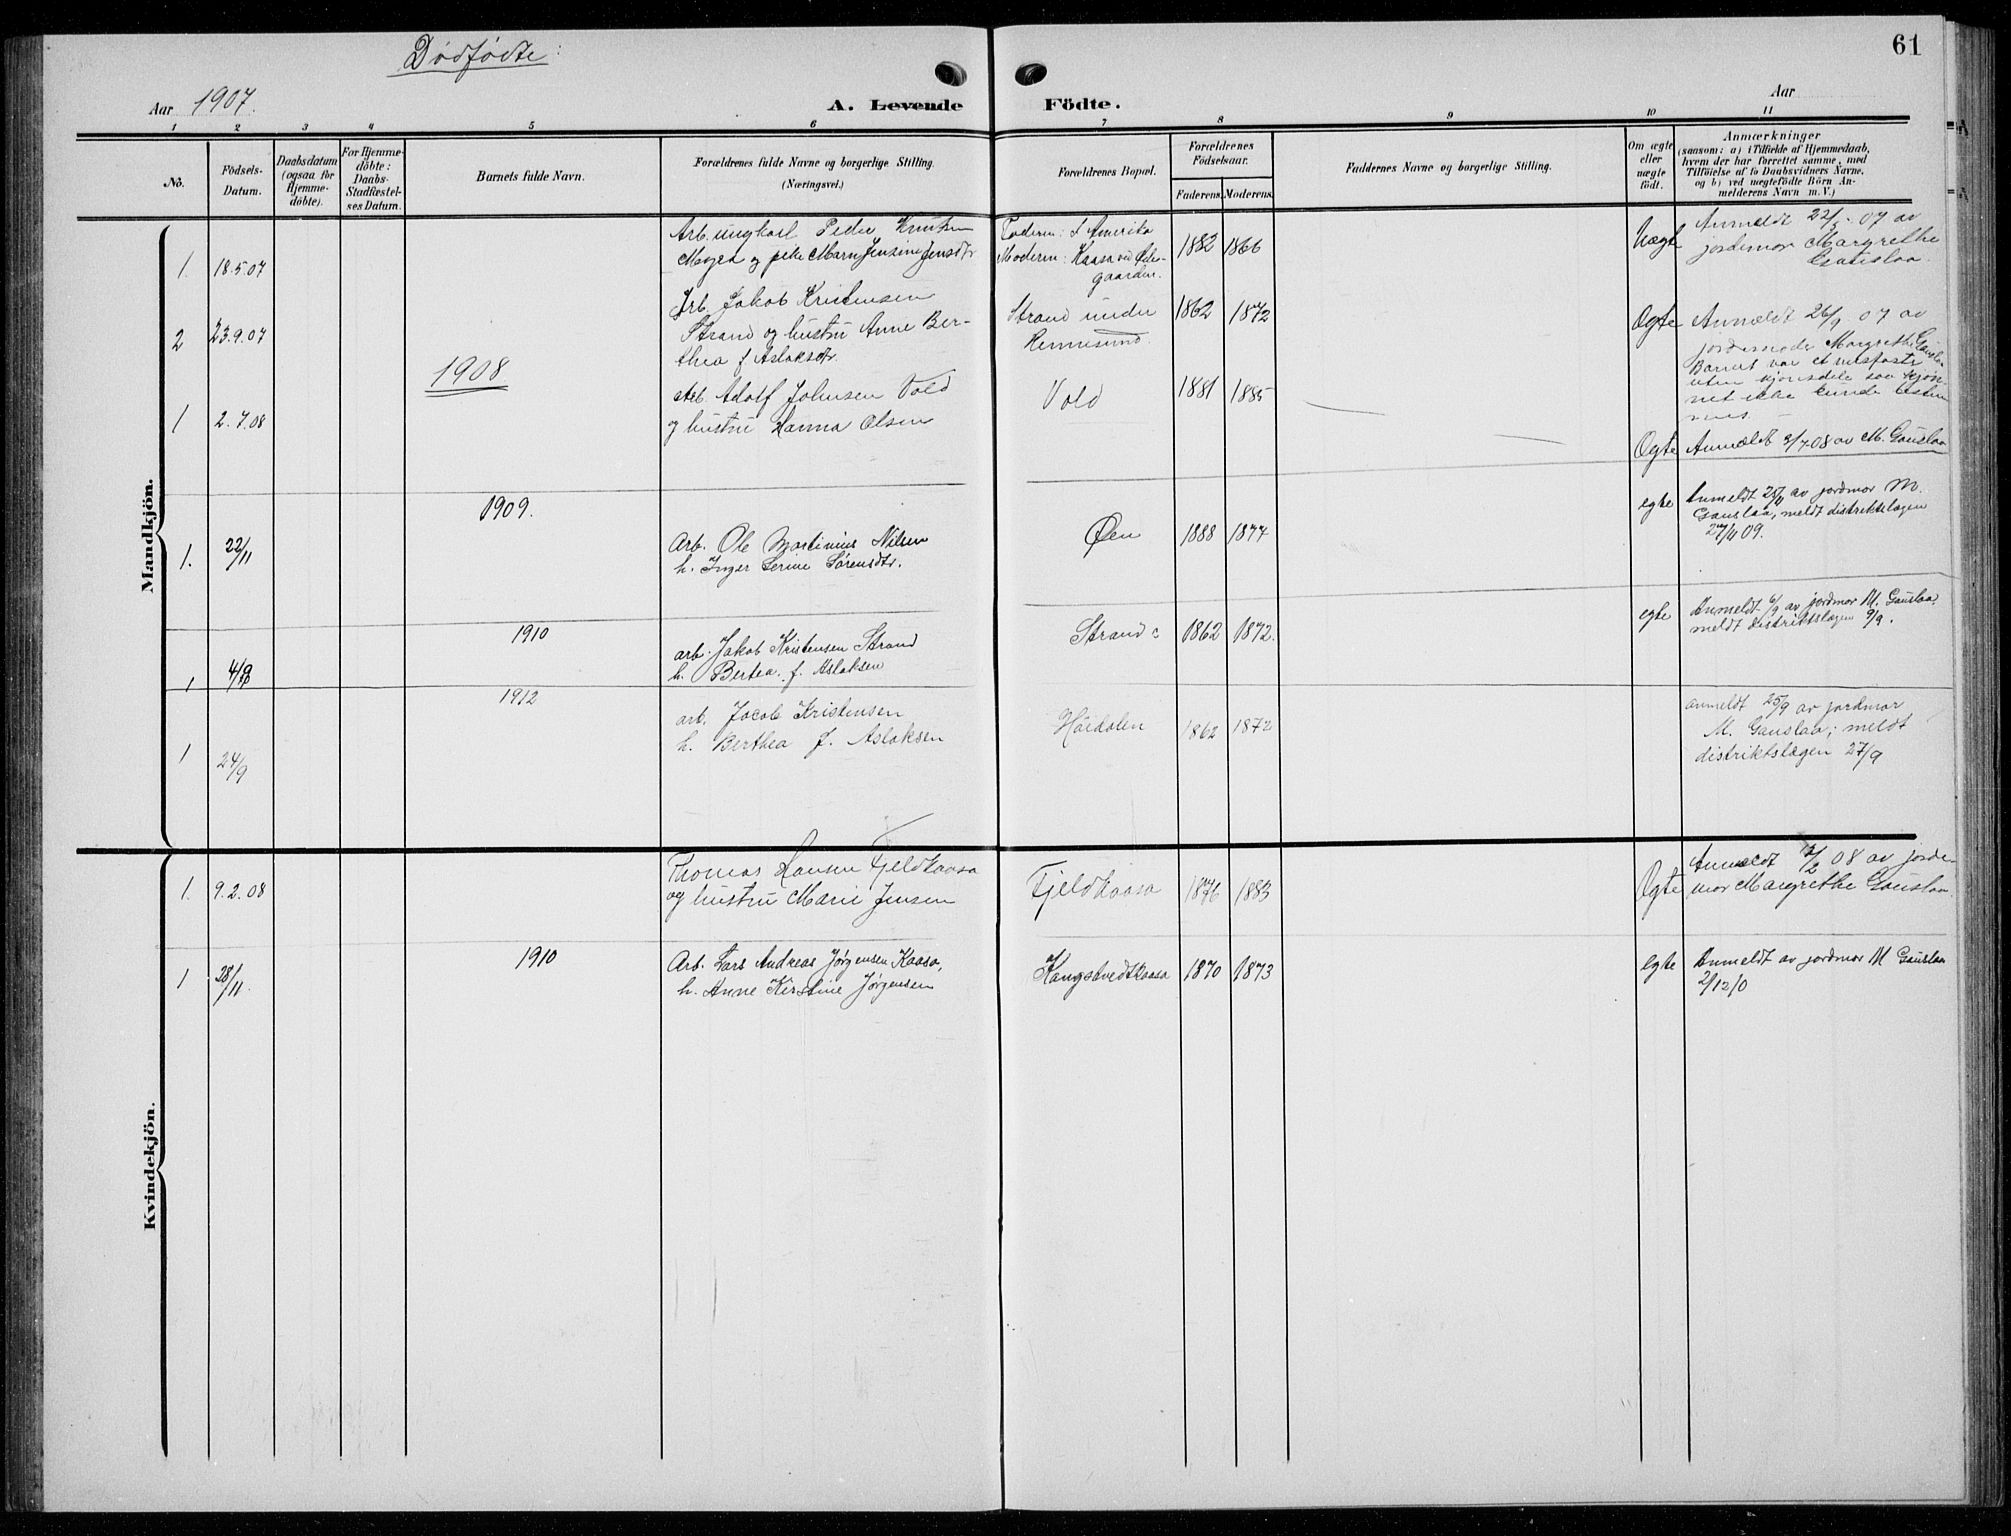 61
Dødfødte:
Aar 1907.
A. Levende Födte.
Aar
1 2 3 4 5 6 7 8 9 10 11
No.
Födsels-
Datum.
Daabsdatum
(ogsaa for
Hjemme-
döbte).
For Hjemme-
döbte:
Daabs-
Stadfæstel-
ses Datum.
Barnets fulde Navn.
Forældrenes fulde Navne og borgerlige Stilling.
(Næringsvei.)
Forældrenes Bopæl.
Forældrenes
Födselsaar.
Faderens. Moderens.
Faddernes Navne og borgerlige Stilling.
Om ægte
eller
uægte
födt.
Anmærkninger
(saasom: a) i Tilfælde af Hjemmedaab,
hvem der har forrettet samme, med
Tilföielse af to Daabsvidners Navne,
og b) ved uægtefödte Börn An-
melderens Navn m. V.)
Mandkjön.
1. 18.5.07
Arb. ungkarl Peder Knutsen
og pike Maren Jensine Jensdtr
Faderen: I Amerika
Moderen: Kaasa ved Øde-
gaarden.
1882 1866
Uægte
Anmeldt 22/5-07 av
jordemor Margrethe
Gauslaa.
2 23.9.07
Arb. Jakob Kristensen
Strand og hustru Anne Ber-
thea f. Aslaksdtr.
Strand under
1862 1872
Ægte
Anmeldt 26/9 07 av
jordemoder Margrethe Gauslaa
Barnet var et
uten kjønsdele saa kjøn-
net ikke kunde bestem
mes
1908
1 2.7.08
Arb Adolf Johnsen Vold
og hustru Hanna Olsen
Vold
1881 1885
Ægte
Anmeldt /7-08 av M. Gauslaa
1909.
1. 22/11
Arb. Ole Martinius Nilsen
h. Inger Serine Sørensdtr.
Øen
1888 1877
egte
Anmeldt 25/11 av jordmor M.
Gauslaa, meldt distriktslægen
27/11 09.
1910
1 4/9
arb. Jakob Kristensen Strand
h. Bertea f. Aslaksen
Strand
1862 1872.
egte
Anmeldt 6/9 av jordmor M. Gauslaa,
meldt distriktslægen 9/9.
1912
1 24/9
arb. Jacob Kristensen
h. Berthea f. Aslaksen
Høidalen
1862 1872
anmeldt 25/9 av jordmor
M. Gauslaa; meldt
distriktslægen 27/9
Kvindekjön.
1. 9.2.08
Thomas Hansen Fjeldkaasa
og hustru Marie Jensen
Fjeldkaasa
1876 1883
Ægte
Anmeldt /2 08 av jorde-
mor Margrethe Gauslaa
1910
1 28/11
Arb. Lars Andreas Jørgensen Kaasa,
h. Anne Kirstine Jørgensen
Kangstvedtkaasa
1870 1873
egte
Anmeldt av jordmor M Gauslaa
2/12 10